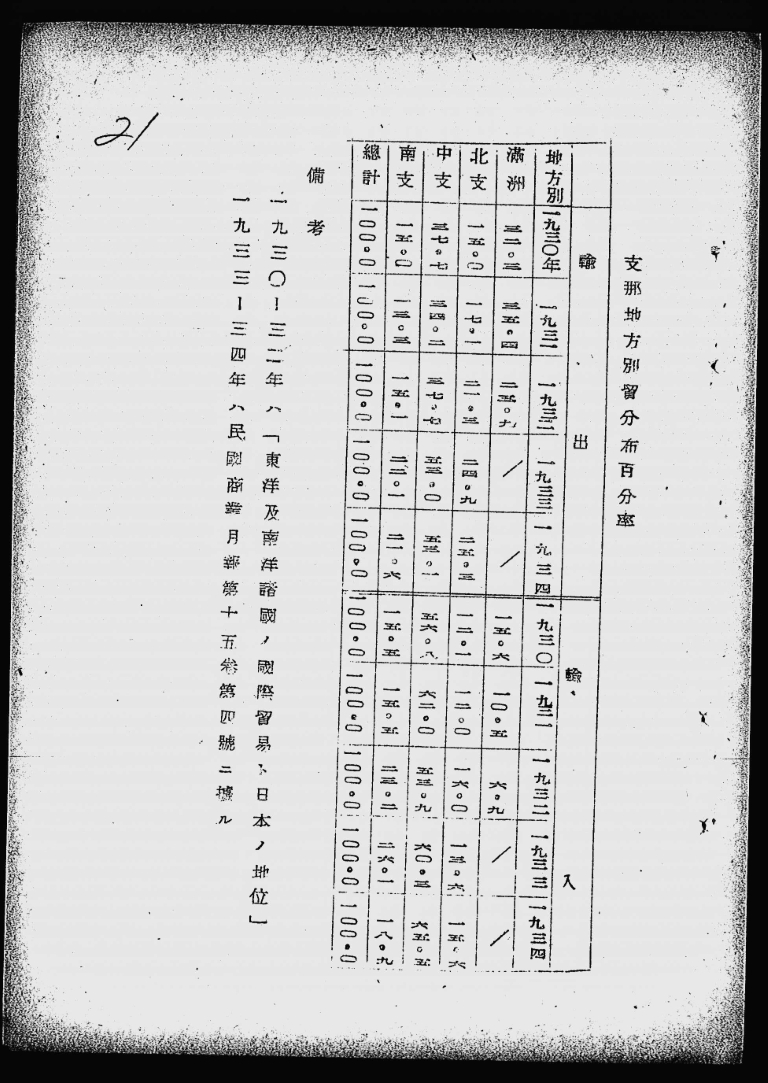 21
支那地方別留分布百分率
輸出 輸入
地方別 一九三〇年 一九三一 一九三二 一九三三 一九三四 一九三〇 一九三一 一九三二 一九三三 一九三四
滿洲 三二。三 三五。四 二五。九 / / 一五。六 一〇。五 六。九 / /
北支 一五。〇 一七。一 二一。三 二四。九 二五。三 一二。一 一二。〇 一六。〇 一三。六 一五。六
中支 三七。七 三四。二 三七。七 五三。〇 五三。一 五六。八 六二。〇 五三。九 六〇。三 六五。五
南支 一五。〇 一三。三 一五。一 二二。一 二一。六 一五。五 一五。五 二三。二 二六。一 一八。九
總計 一〇〇。〇 一〇〇。〇 一〇〇。〇 一〇〇。〇 一〇〇。〇 一〇〇。〇 一〇〇。〇 一〇〇。〇 一〇〇。〇 一〇〇。〇
備考
一九三〇ー三二年ハ「東洋及南洋諸國ノ國際貿易ト日本ノ地位」
一九三三ー三四年ハ民國商業月報第十五卷第四號ニ據ル